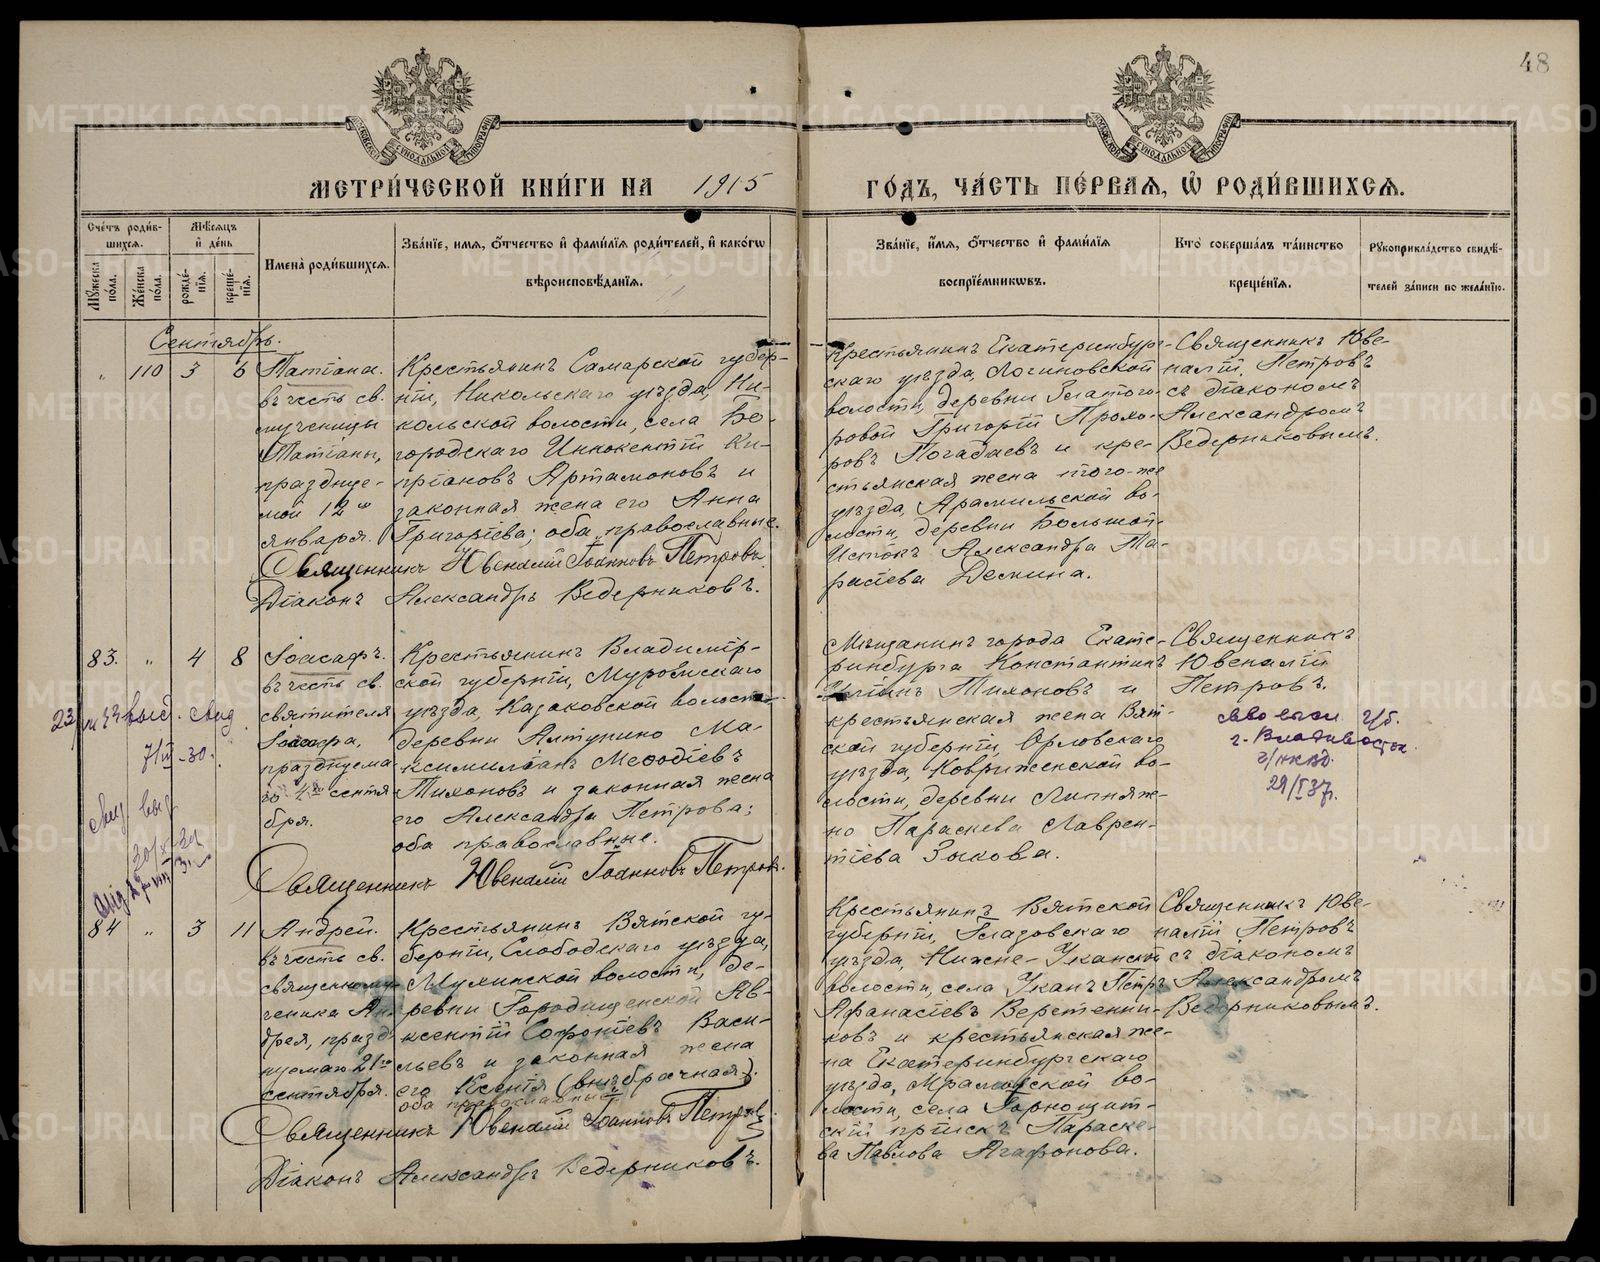 48
МЕТРИ́ЧЕСКОЙ КНИ́ГИ НА 1915 ГО́ДЪ, ЧА́СТЬ ПЕ́РВАЯ, Ѡ РОДИ́ВШИХСЯ.
Сче́тъ роди́в-
шихся.
Мꙋ́жеска по́ла.
Же́нска по́ла.
Мѣ́сяцъ и де́нь
рожде́-
нїя.
креще́-
нїя.
Имена̀ роди́вшихся.
Зва́нїе, имя, ѻтчество и фами́лїя роди́телей, и како́гѡ
вѣроисповѣ́данїя.
Зва́нїе, имя, ѻтчество и фами́лїя
воспрїе́мникѡвъ.
Кто̀ соверша́лъ та́инство
креще́нїя.
Рꙋкоприкла́дство свидѣ́-
телей за́писи по жела́нїю.
Сентябрь.
" 110 3 6
Татіана.
въ честь св.
мученицы
Татіаны,
праздуе-
мой 12го
января.
Крестьянинъ Самарской губер-
ніи, Никольскаго уѣзда, Ни-
кольской волости, села Бо-
городскаго Иннокентій Ки-
пріановъ Артамоновъ и
законная жена его Анна
Григоріева; оба православные.
Священникъ Ювеналій Іоанновъ Петровъ
Діаконъ Александръ Ведерниковъ.
Крестьянинъ Екатеринбург-
скаго уѣзда, Логиновской
волости, деревни Златого-
ровой Григорій Прохо-
ровъ Погадаевъ и кре-
стьянская жена того-же
уѣзда, Арамильской во-
лости, деревни Большой-
Истокъ Александра Та-
расіева Демина.
Священникъ Юве-
налій Петровъ
съ діакономъ
Александромъ
Ведерниковымъ.
83. " 4 8
Іоасафъ.
въ честь св.
святителя
Іоасафа,
празднуема
го 4го сентя
бря.
Крестьянинъ Владимір-
ской губерніи, Муромскаго
уѣзда, Казаковской волости
деревни Алтунино Ма-
ксимиліанъ Меѳодіевъ
Тихоновъ и законная жена
его Александра Петрова;
оба православные.
Священникъ Ювеналій Іоанновъ Петровъ.
Мѣщанинъ города Екате-
ринбурга Константинъ
Тихоновъ и
крестьянская жена Вят-
ской губерніи, Орловскаго
уѣзда, во-
лости, деревни
Параскева Лаврен-
тіева Зыкова.
Священникъ
Ювеналій
Петровъ.
г. Владивосток
29/I 37г.
выд.
84 " 3 11
Андрей.
въ честь св.
священному-
ченика Ан-
дрея, празд-
нуемаго 21го
сентября.
Крестьянинъ Вятской гу-
берніи, Слободскаго уѣзда,
Мулинской волости, де-
ревни Городищенской Ав-
ксентій Софоніевъ Васи-
льевъ и законная жена
его Ксенія (внѣбрачная).
оба православные
Священникъ Ювеналій Іоанновъ Петровъ
Діаконъ Александръ Ведерниковъ.
Крестьянинъ Вятской
губерніи, Глазовскаго
уѣзда, Нижне-Уканской
волости, села Уканъ Петръ
Афанасіевъ Веретенни-
ковъ и крестьянская же-
на Екатеринбургскаго
уѣзда, Мраморской во-
лости, села Горнощит-
скій Параске-
ва Павлова Агафонова.
Священникъ Юве-
налій Петровъ
съ діакономъ
Александромъ
Ведерниковымъ.
METRIKI.GASO-URAL.RU